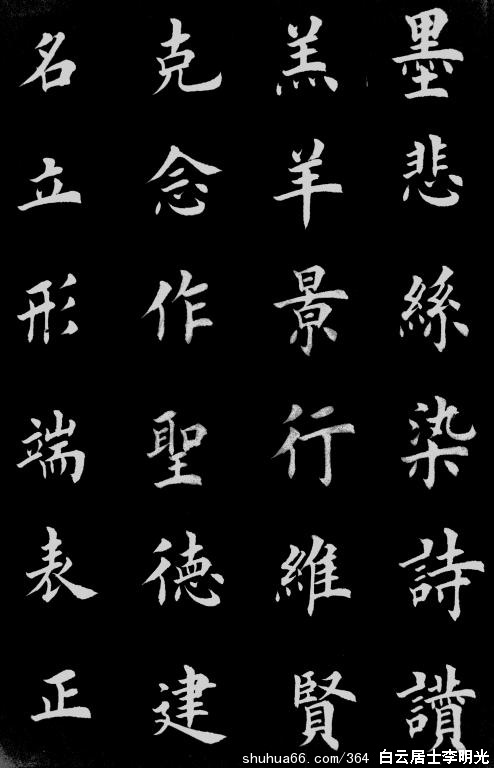 墨悲絲染詩讃
羔羊景行維賢
克念作聖德建
名立形端表正
shuhua66.com/364 白云居士李明光